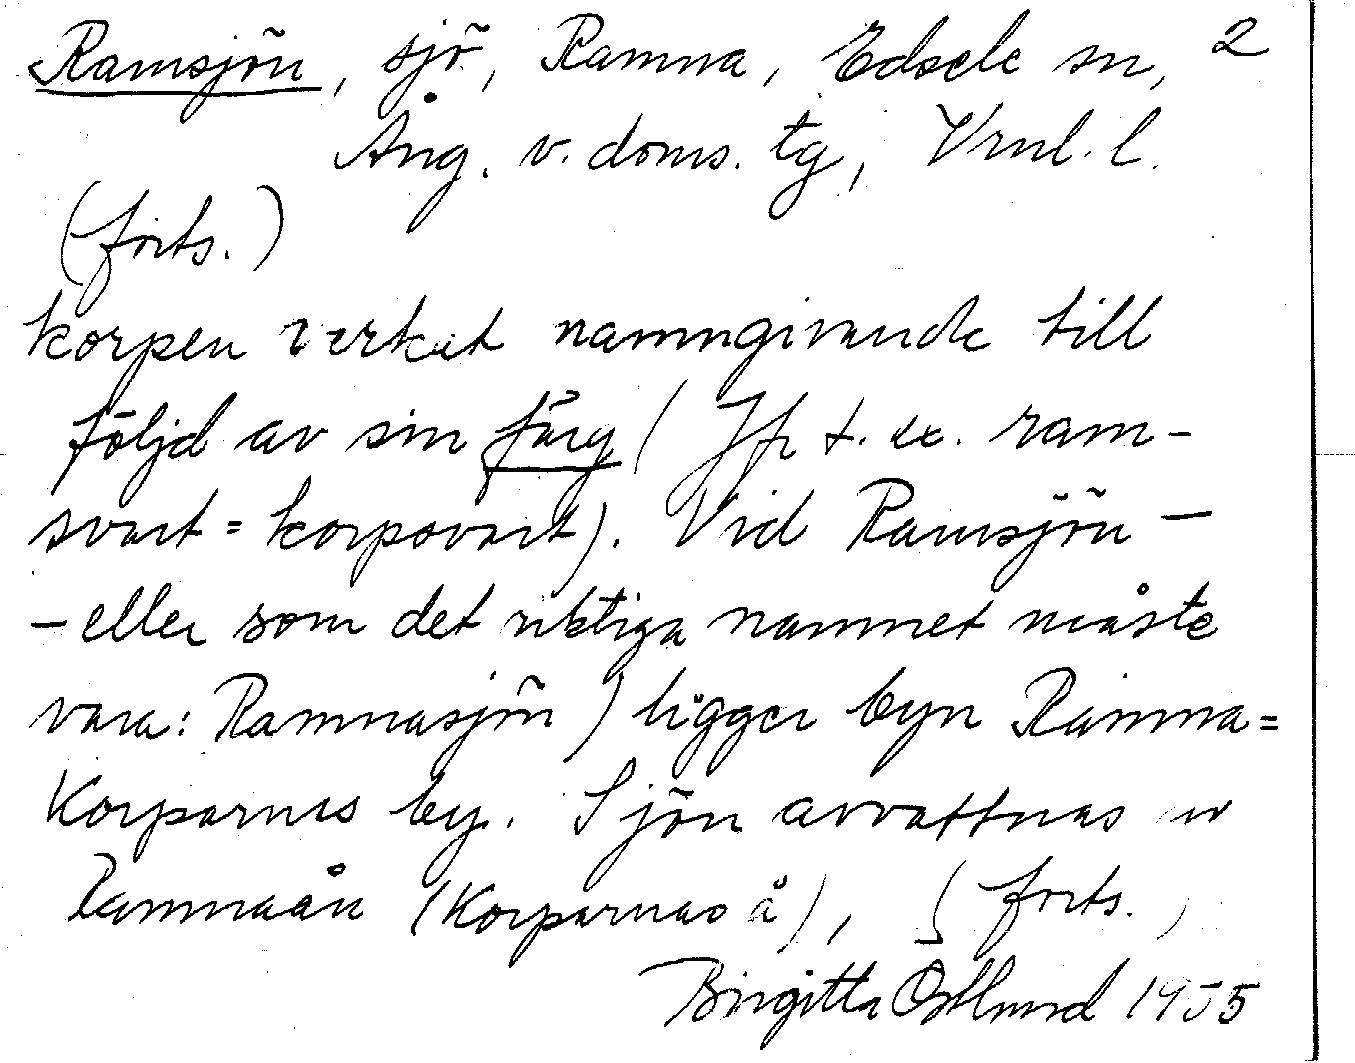 Ramsjön, sjö, Ramna, Edsele sn, 2
Ång. v. doms. tg, Vrnl. l.
(forts.)
korpen verkat namngivande till
följd av sin färg (Jfr t. ex. ram-
svart = korpsvart). Vid Ramsjön -
- eller som det riktiga namnet måste
vara: Ramnasjön) ligger byn Ramna =
Korparnas by. Sjön avvattnas av
Ramnaån (Korparnas å), (forts.)
Birgitta Östlund 1955